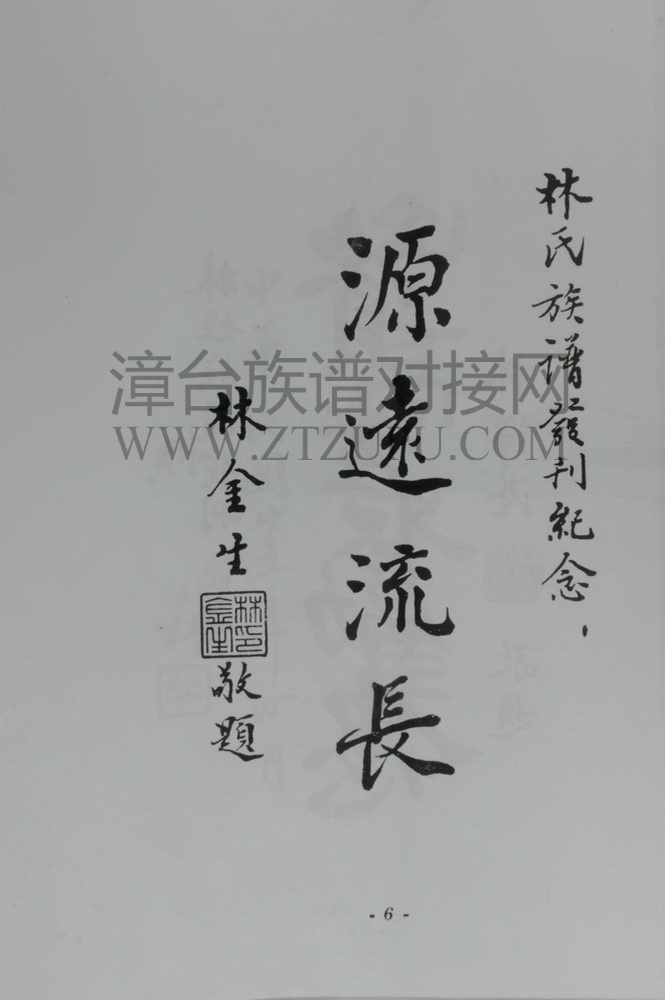 林氏族譜發刊紀念，
源遠流長
林金生
敬題
漳台族谱对接网
WWW.ZTZUPU.COM
- 6 -